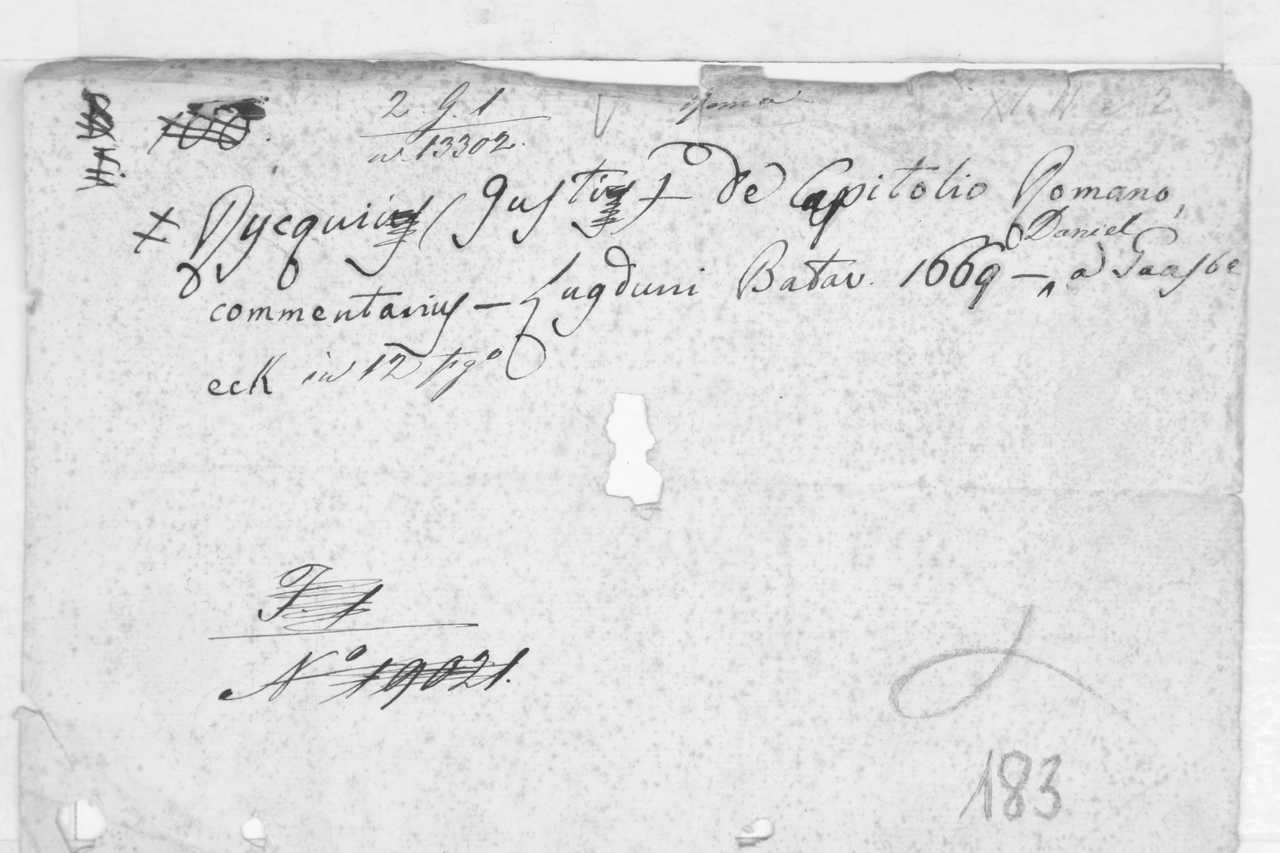 2 G. 1
n 13302.
XI. H e 2
x Rycquius (Justus) + de Capitolio Romano,
Daniel
commentarius – Lugduni Batav. 1669 – a Gaasbe
eck in 12 fig°
F. 1
N° 19021.
183